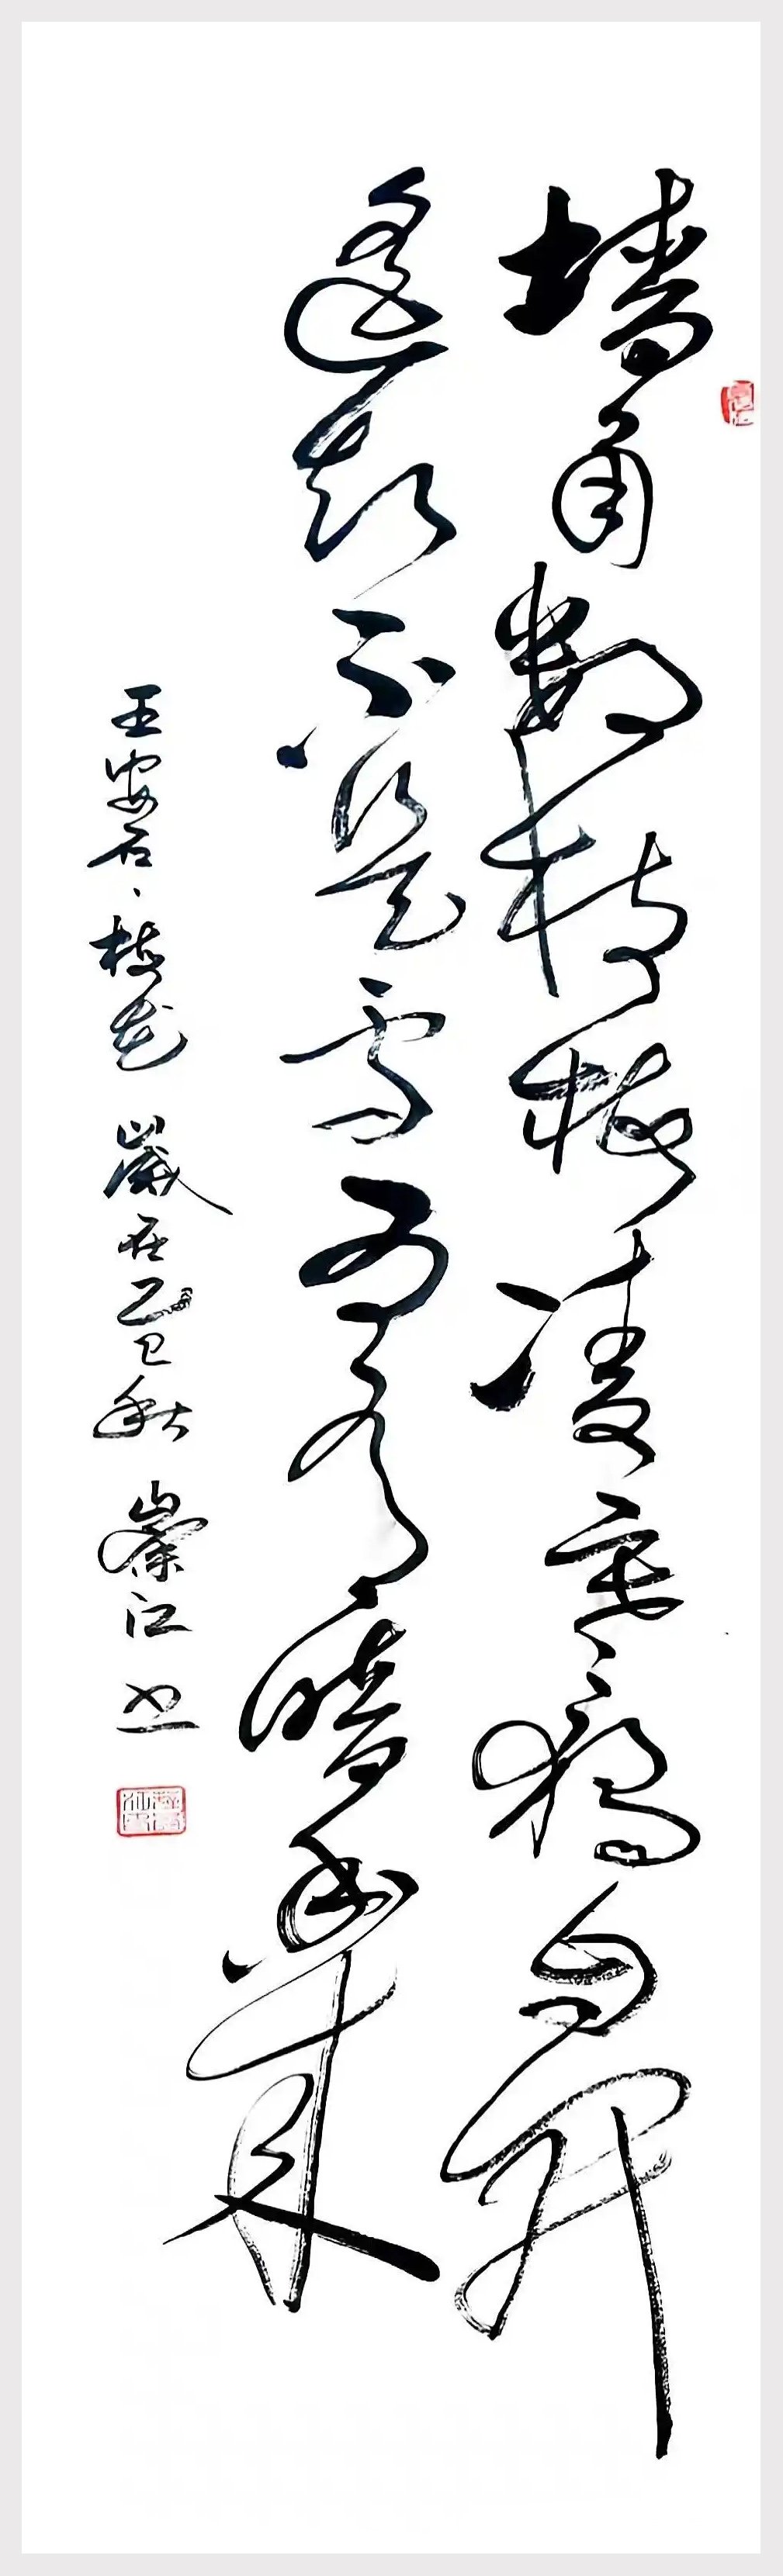 墙角数枝梅凌寒独自开
遥知不是雪为有暗香来
王安石、梅花 岁在乙巳秋 崇江书